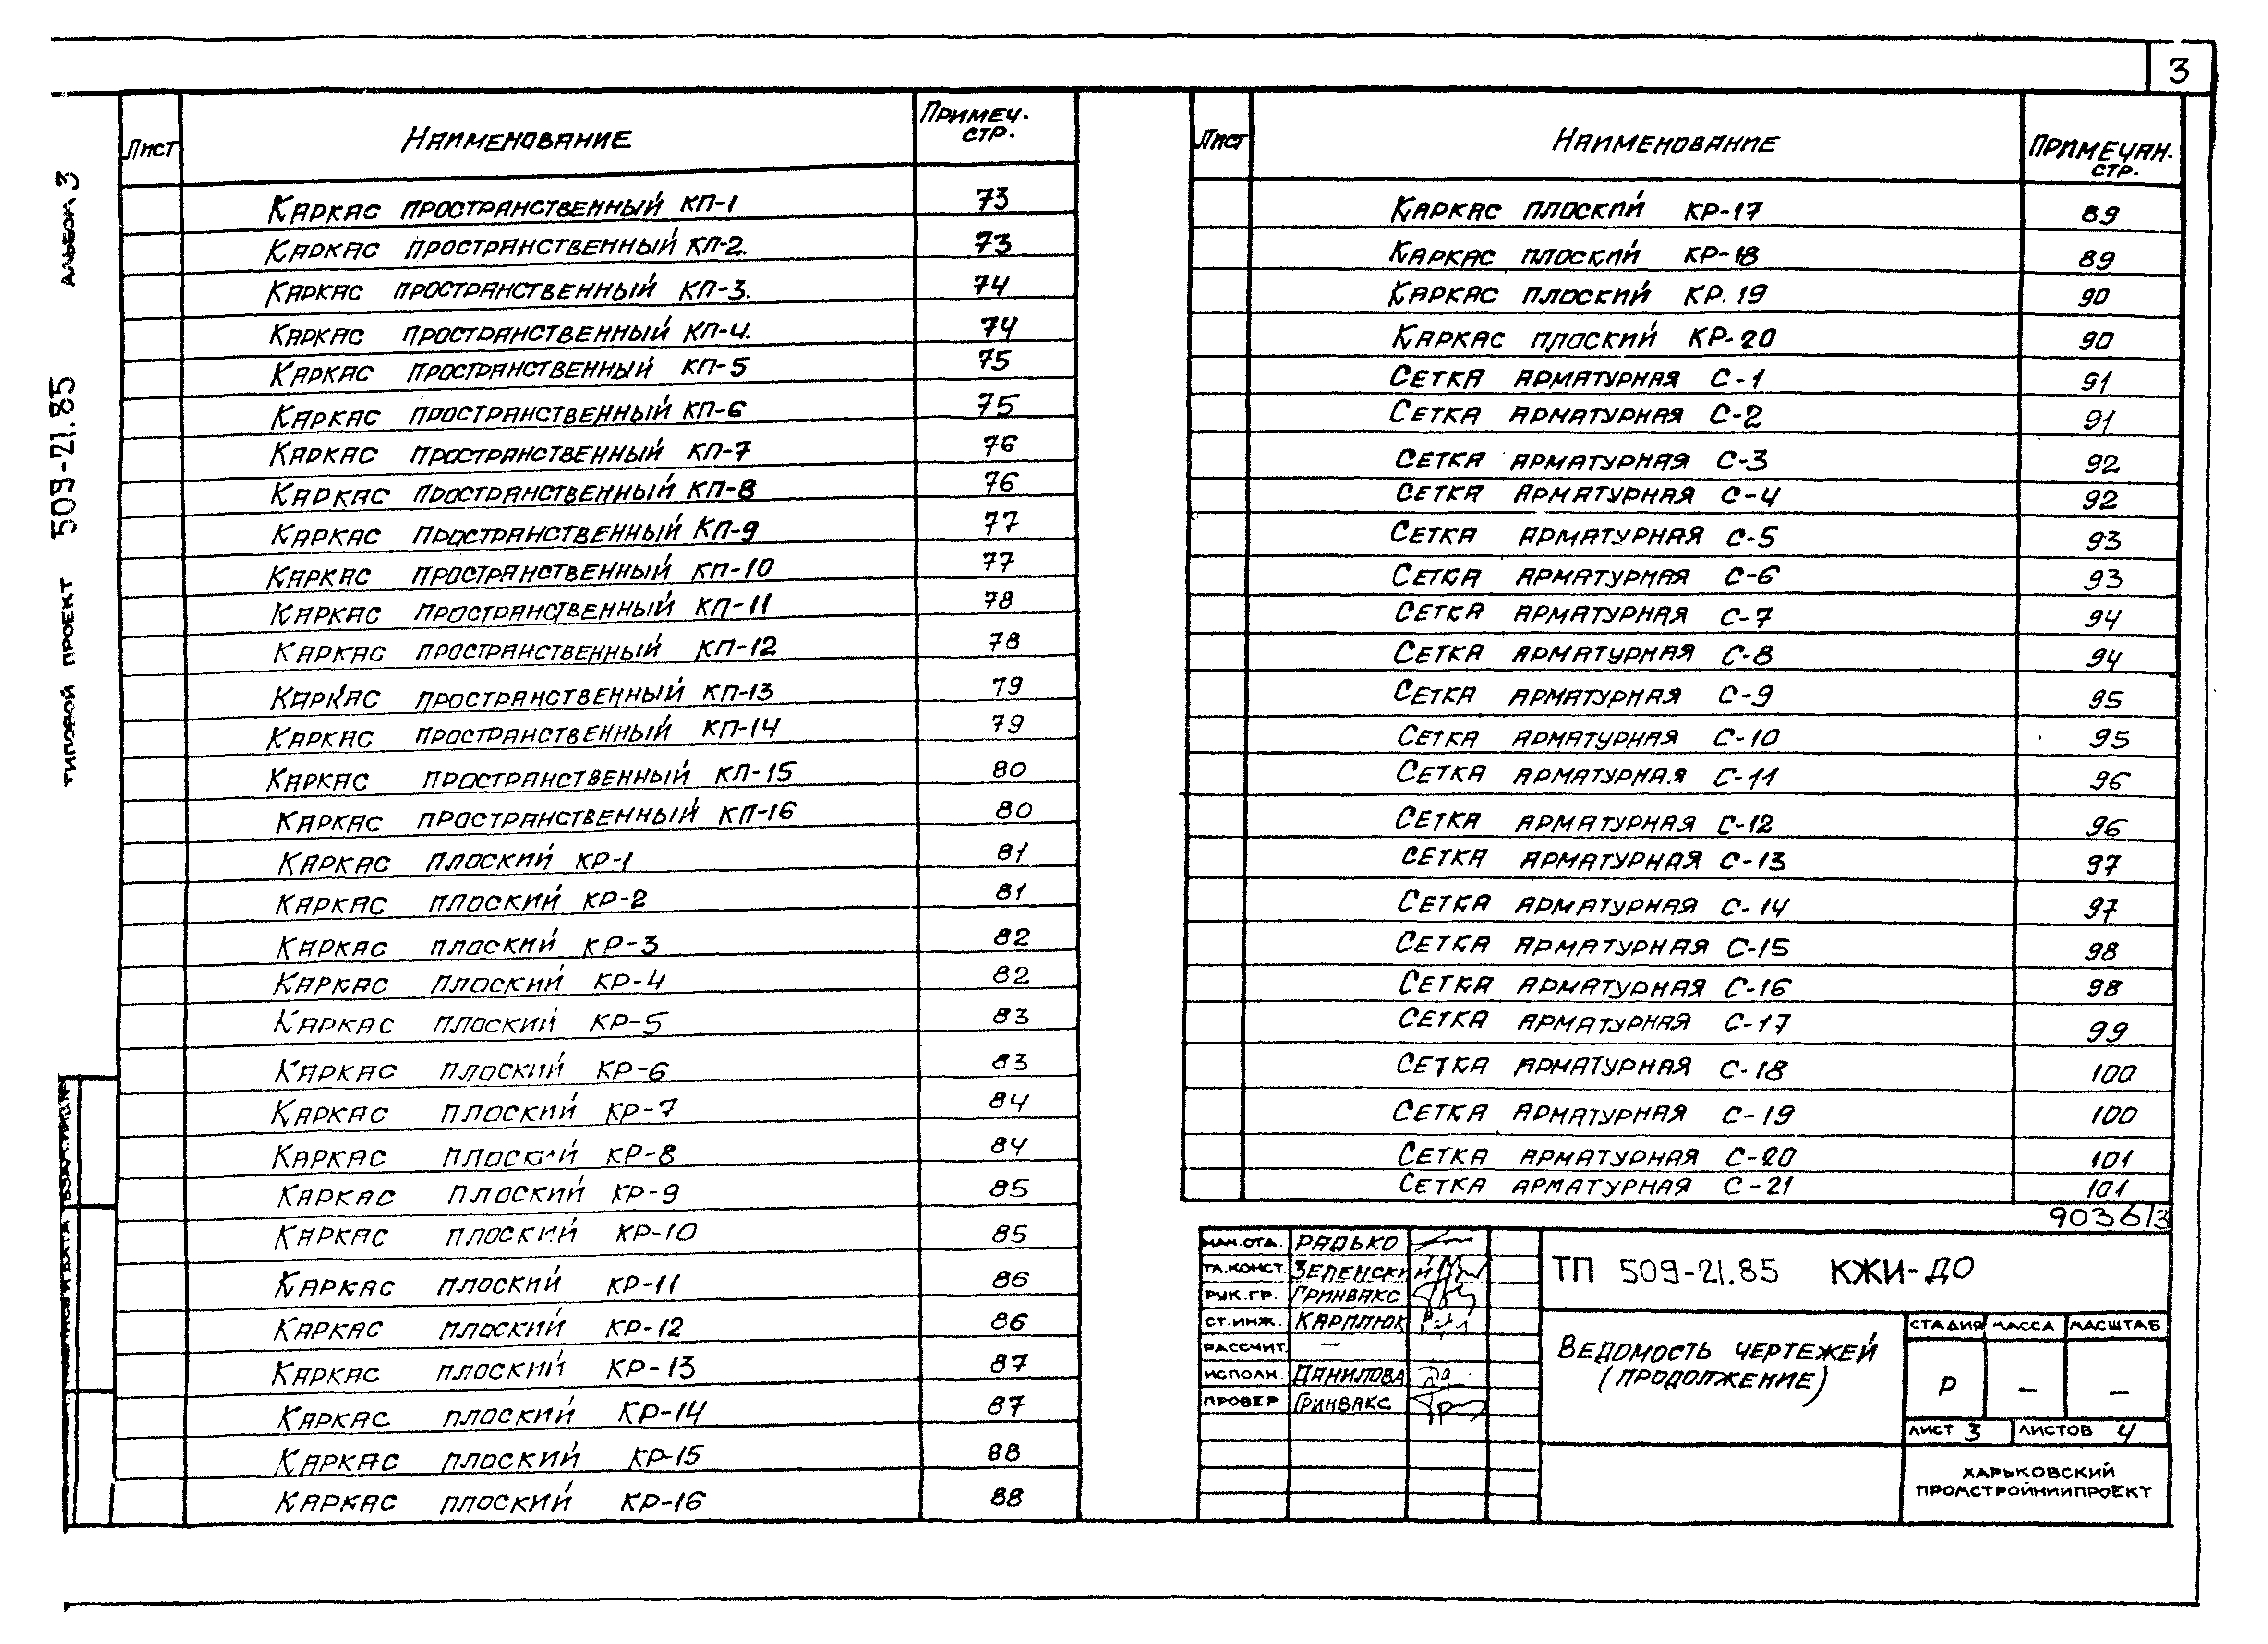 3
Альбом 3
509-21.85
Типовой проект
Лист Наименование Примеч. стр.
Каркас пространственный КП-1 73
Каркас пространственный КП-2. 73
Каркас пространственный КП-3. 74
Каркас пространственный КП-4. 74
Каркас пространственный КП-5 75
Каркас пространственный КП-6 75
Каркас пространственный КП-7 76
Каркас пространственный КП-8 76
Каркас пространственный КП-9 77
Каркас пространственный КП-10 77
Каркас пространственный КП-11 78
Каркас пространственный КП-12 78
Каркас пространственный КП-13 79
Каркас пространственный КП-14 79
Каркас пространственный КП-15 80
Каркас пространственный КП-16 80
Каркас плоский КР-1 81
Каркас плоский КР-2 81
Каркас плоский КР-3 82
Каркас плоский КР-4 82
Каркас плоский КР-5 83
Каркас плоский КР-6 83
Каркас плоский КР-7 84
Каркас плоский КР-8 84
Каркас плоский КР-9 85
Каркас плоский КР-10 85
Каркас плоский КР-11 86
Каркас плоский КР-12 86
Каркас плоский КР-13 87
Каркас плоский КР-14 87
Каркас плоский КР-15 88
Каркас плоский КР-16 88
Лист Наименование Примечан. стр.
Каркас плоский КР-17 89
Каркас плоский КР-18 89
Каркас плоский КР.19 90
Каркас плоский КР-20 90
Сетка арматурная С-1 91
Сетка арматурная С-2 91
Сетка арматурная С-3 92
Сетка арматурная С-4 92
Сетка арматурная С-5 93
Сетка арматурная С-6 93
Сетка арматурная С-7 94
Сетка арматурная С-8 94
Сетка арматурная С-9 95
Сетка арматурная С-10 95
Сетка арматурная С-11 96
Сетка арматурная С-12 96
Сетка арматурная С-13 97
Сетка арматурная С-14 97
Сетка арматурная С-15 98
Сетка арматурная С-16 98
Сетка арматурная С-17 99
Сетка арматурная С-18 100
Сетка арматурная С-19 100
Сетка арматурная С-20 101
Сетка арматурная С-21 101
9036/3
Нач.отд. Радько
Гл.конст. Зеленский
Рук.гр. Гринвакс
Ст.инж. Карплюк
Рассчит. —
Исполн. Данилова
Провер Гринвакс
ТП 509-21.85 КЖИ-ДО
Ведомость чертежей
(продолжение)
Стадия Масса Масштаб
Р — —
Лист 3 Листов 4
Харьковский
Промстройниипроект